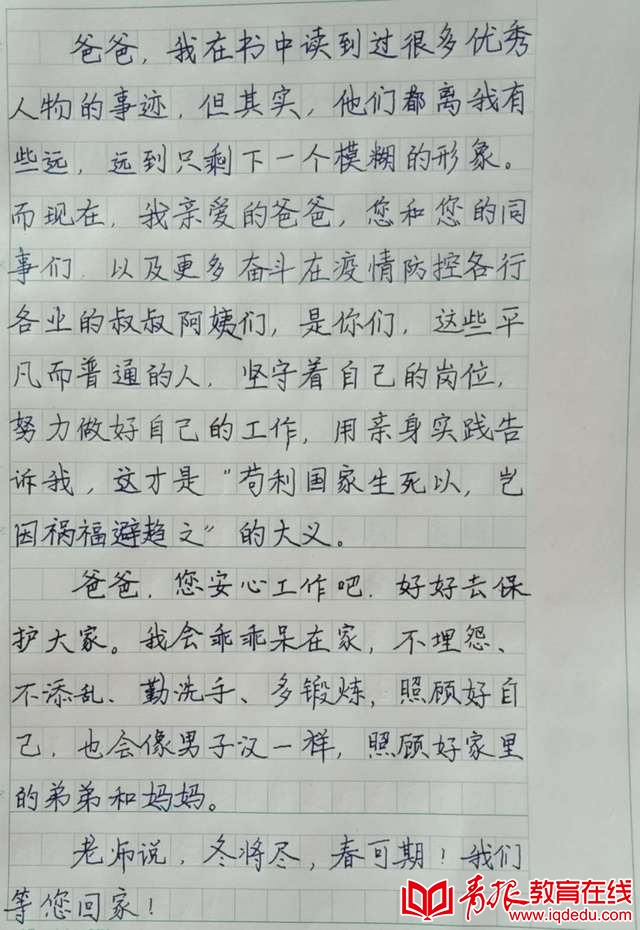 爸爸，我在书中读到过很多优秀
人物的事迹，但其实，他们都离我有
些远，远到只剩下一个模糊的形象。
而现在，我亲爱的爸爸，您和您的同
事们，以及更多奋斗在疫情防控各行
各业的叔叔阿姨们，是你们，这些平
凡而普通的人，坚守着自己的岗位，
努力做好自己的工作，用亲身实践告
诉我，这才是“苟利国家生死以，岂
因祸福避趋之”的大义。
爸爸，您安心工作吧，好好去保
护大家。我会乖乖呆在家，不埋怨、
不添乱、勤洗手、多锻炼，照顾好自
己，也会像男子汉一样，照顾好家里
的弟弟和妈妈。
老师说，冬将尽，春可期！我们
等您回家！
青报教育在线
www.iqdedu.com